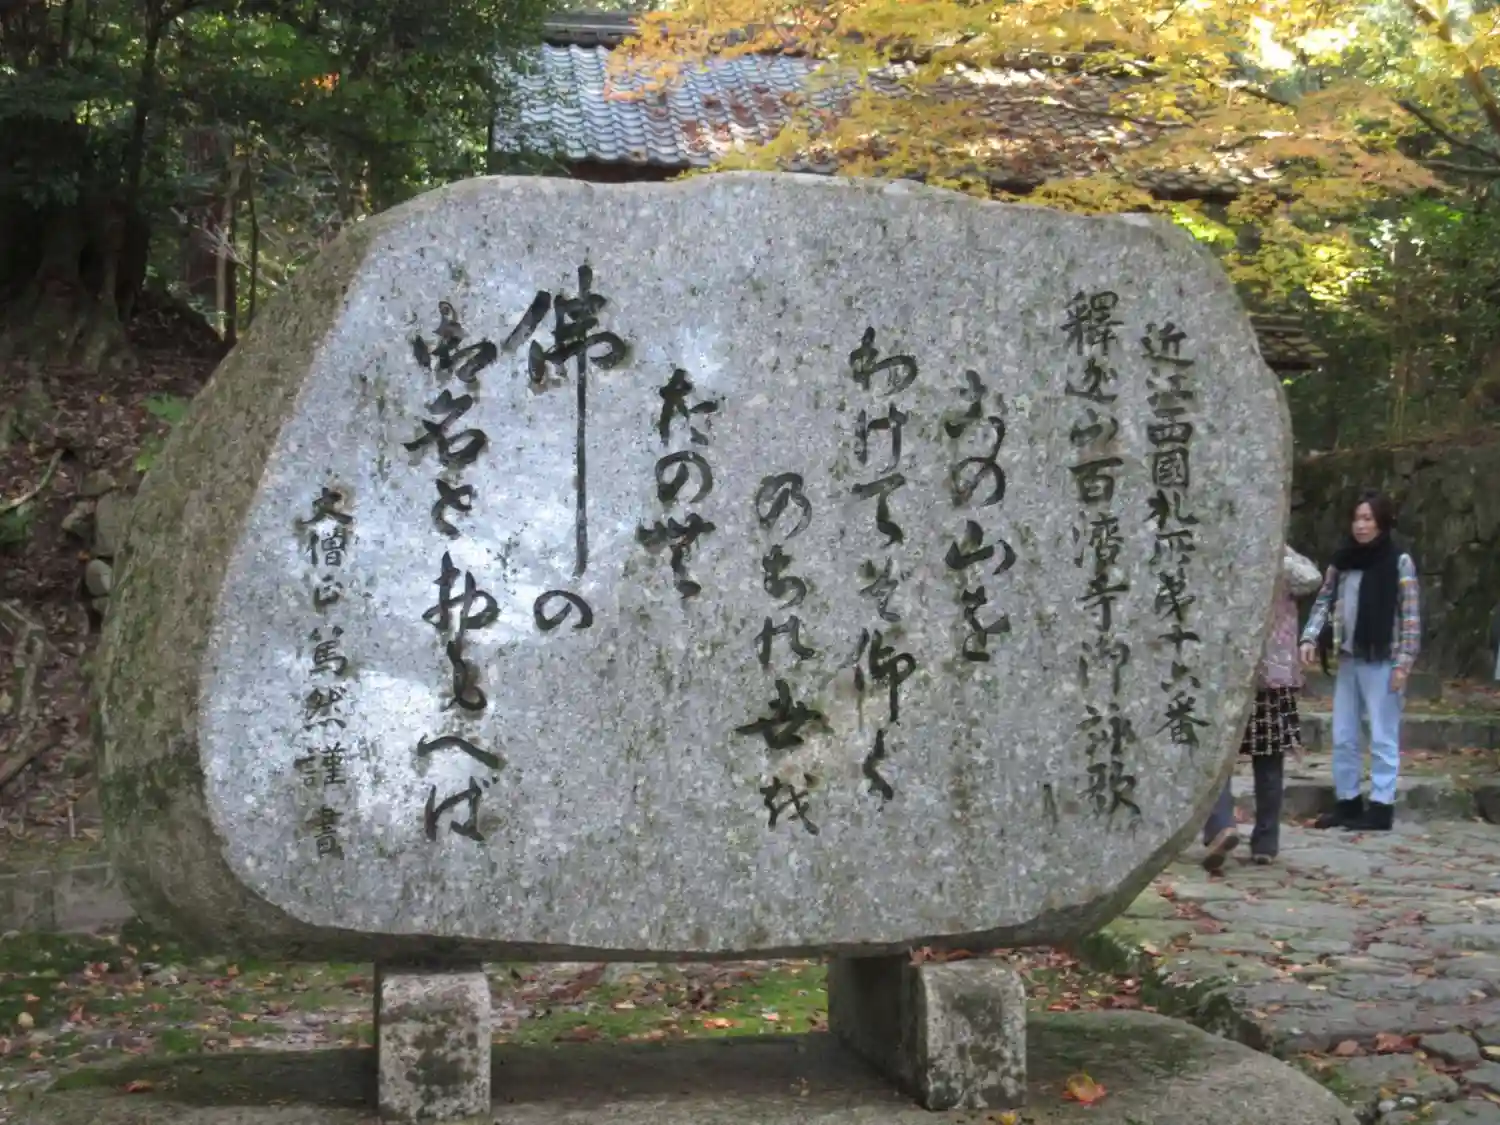 近江西國札所第十六番
釋迦山百済寺御詠歌
この山を
わけてぞ仰く
のちの世を
たのむ
佛の
御名とおもへば
大僧正篤然謹書